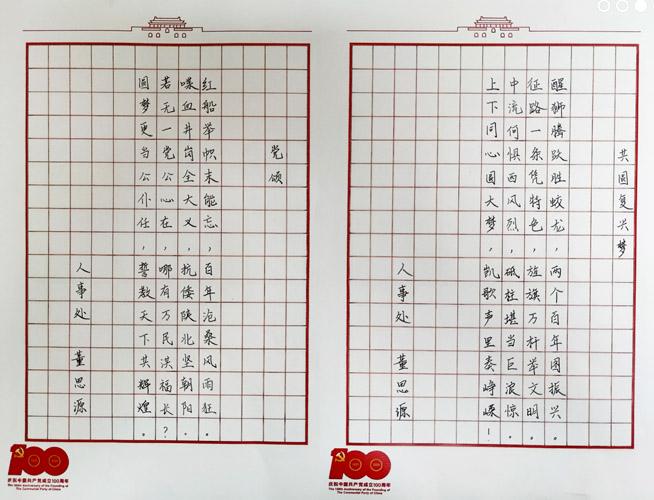 党颂
红船举帜未能忘,百年沧桑风雨狂。
喋血井岗全大义,抗倭陕北坚朝阳。
若无一党公心在,哪有万民洪福长?
圆梦更当公仆任,誓教天下共辉煌。
人事处 董思源
100
庆祝中国共产党成立100周年
The 100th Anniversary of the Founding of
The Communist Party of China
共圆复兴梦
醒狮腾跃胜蛟龙,两个百年图振兴。
征路一条凭特色,旌旗万杆举文明。
中流何惧西风烈,砥柱堪当巨浪惊。
上下同心圆大梦,凯歌声里奏峥嵘!
人事处 董思源
100
庆祝中国共产党成立100周年
The 100th Anniversary of the Founding of
The Communist Party of China